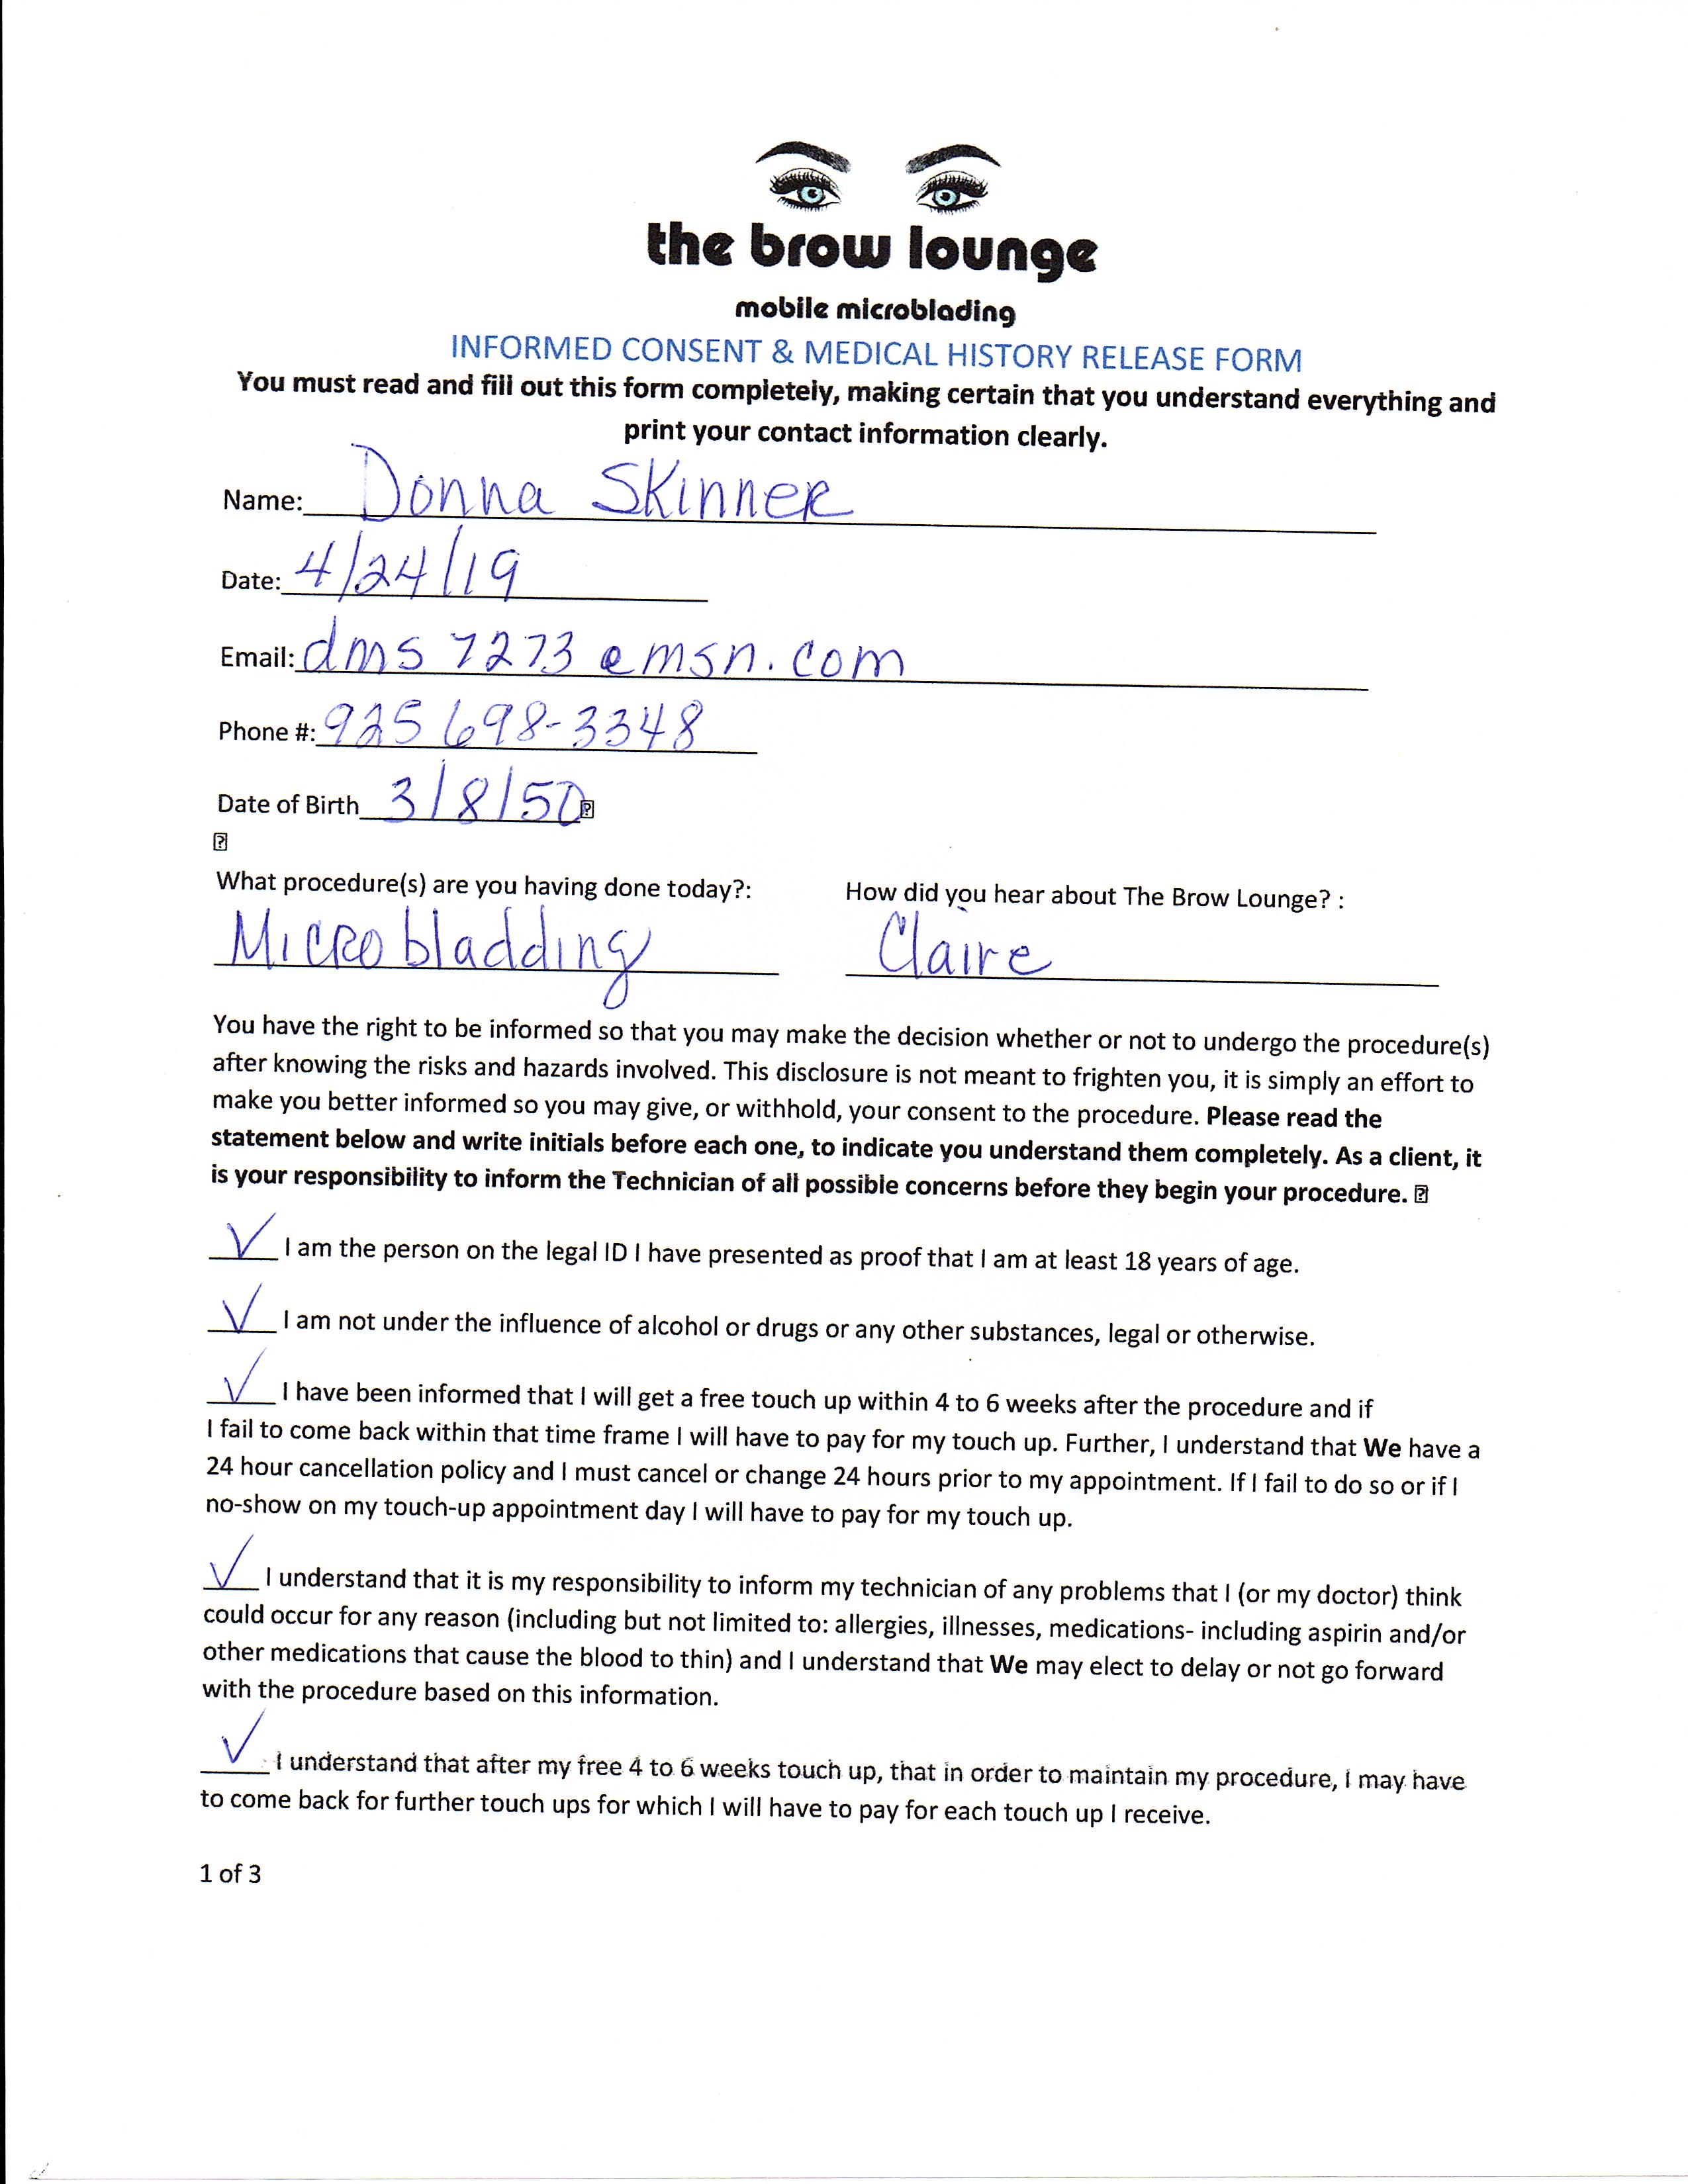 the brow lounge
mobile microblading
INFORMED CONSENT & MEDICAL HISTORY RELEASE FORM
You must read and fill out this form completely, making certain that you understand everything and
print your contact information clearly.
Name: Donna Skinner
Date: 4/24/19
Email: dms7273@msn.com
Phone #: 925 698-3348
Date of Birth 3/8/50
What procedure(s) are you having done today?: How did you hear about The Brow Lounge? :
Microbladding Claire
You have the right to be informed so that you may make the decision whether or not to undergo the procedure(s)
after knowing the risks and hazards involved. This disclosure is not meant to frighten you, it is simply an effort to
make you better informed so you may give, or withhold, your consent to the procedure. Please read the
statement below and write initials before each one, to indicate you understand them completely. As a client, it
is your responsibility to inform the Technician of all possible concerns before they begin your procedure.
✓ I am the person on the legal ID I have presented as proof that I am at least 18 years of age.
✓ I am not under the influence of alcohol or drugs or any other substances, legal or otherwise.
✓ I have been informed that I will get a free touch up within 4 to 6 weeks after the procedure and if
I fail to come back within that time frame I will have to pay for my touch up. Further, I understand that We have a
24 hour cancellation policy and I must cancel or change 24 hours prior to my appointment. If I fail to do so or if I
no-show on my touch-up appointment day I will have to pay for my touch up.
✓ I understand that it is my responsibility to inform my technician of any problems that I (or my doctor) think
could occur for any reason (including but not limited to: allergies, illnesses, medications- including aspirin and/or
other medications that cause the blood to thin) and I understand that We may elect to delay or not go forward
with the procedure based on this information.
✓ I understand that after my free 4 to 6 weeks touch up, that in order to maintain my procedure, I may have
to come back for further touch ups for which I will have to pay for each touch up I receive.
1 of 3